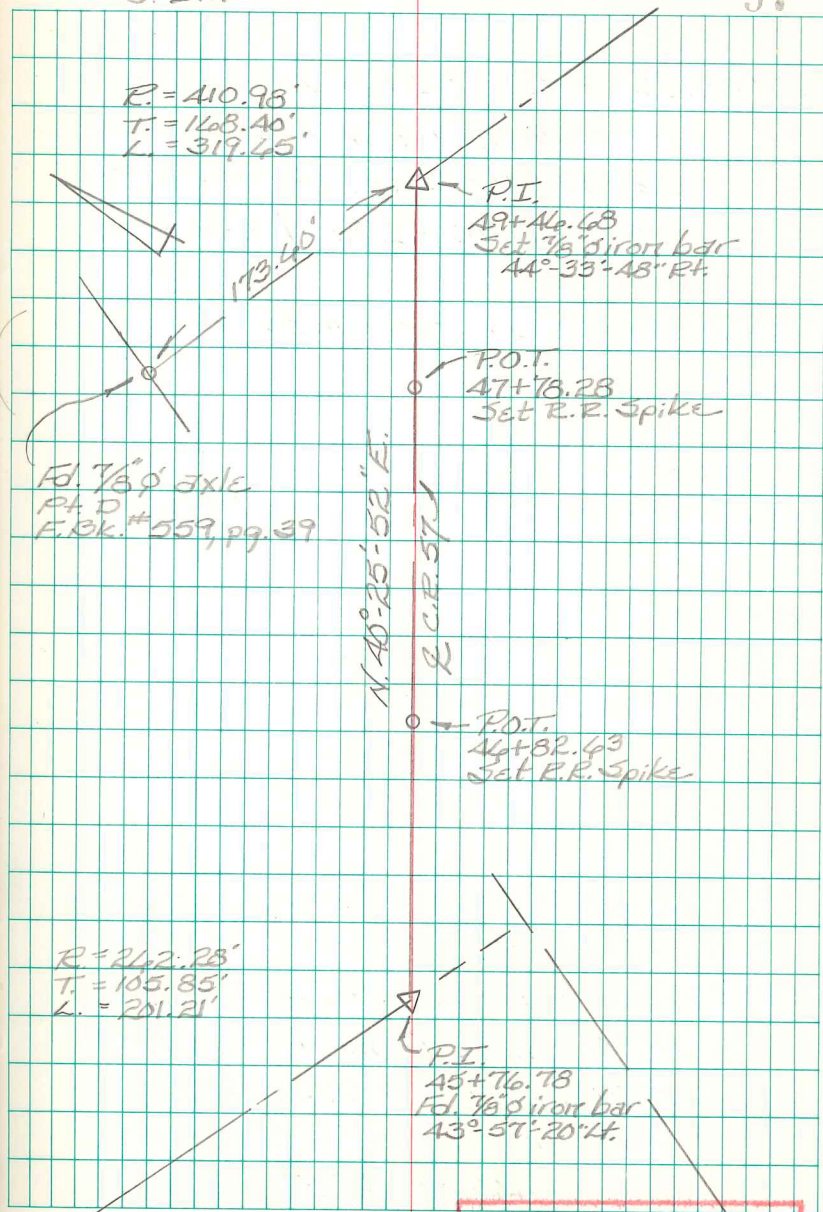 R. = 410.98'
T. = 168.40'
L. = 319.65'
P.I.
49+46.68
Set 7/8"ø iron bar
44°-33'-48" Rt.
173.40'
P.O.T.
47+78.28
Set R.R. Spike
Fd. 7/8"ø axle
Pt. D
F.Bk. #559, pg. 39
N. 40°-25'-52" E.
℄ C.R. 57
P.O.T.
46+82.63
Set R.R. Spike
R = 262.28'
T. = 105.85'
L. = 201.21'
P.I.
45+76.78
Fd. 7/8"ø iron bar
43°-57'-20" Lt.